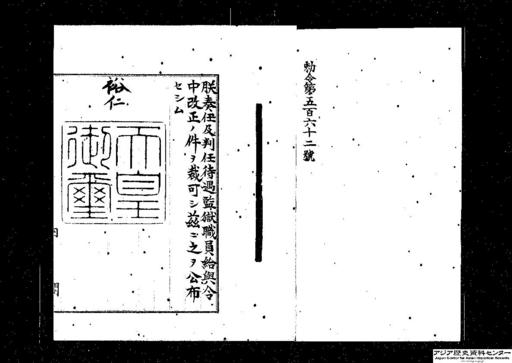 勅令第五百六十二號
朕奏任及判任待遇監獄職員給與令
中改正ノ件ヲ裁可シ茲ニ之ヲ公布
セシム
裕仁
天皇
御璽
アジア歴史資料センター
Japan Center for Asian Historical Records